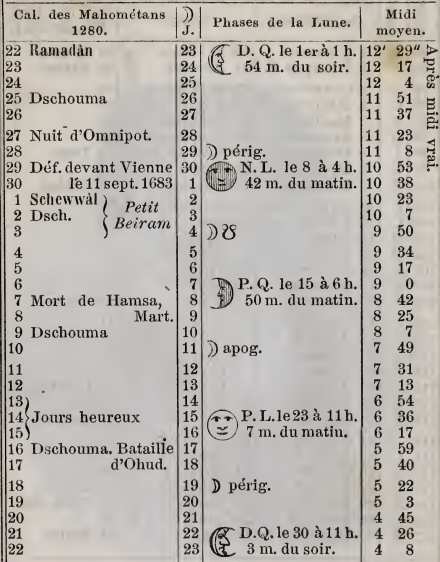 Cal. des Mahométans 1280. | ☽ J. | Phases de la Lune. | Midi moyen.
22 Ramadân | 23 | D. Q. le 1er à 1 h. | 12' 29"
23 | 24 | 54 m. du soir. | 12 17
24 | 25 | | 12 4
25 Dschouma | 26 | | 11 51
26 | 27 | | 11 37
27 Nuit d'Omnipot. | 28 | | 11 23
28 | 29 | ☽ périg. | 11 8
29 Déf. devant Vienne | 30 | N. L. le 8 à 4 h. | 10 53
30 le 11 sept. 1683 | 1 | 42 m. du matin. | 10 38
1 Schewwâl } Petit | 2 | | 10 23
2 Dsch. } Beiram | 3 | | 10 7
3 | 4 | ☽ ☋ | 9 50
4 | 5 | | 9 34
5 | 6 | | 9 17
6 | 7 | P. Q. le 15 à 6 h. | 9 0
7 Mort de Hamsa, | 8 | 50 m. du matin. | 8 42
8 Mart. | 9 | | 8 25
9 Dschouma | 10 | | 8 7
10 | 11 | ☽ apog. | 7 49
11 | 12 | | 7 31
12 | 13 | | 7 13
13 } | 14 | | 6 54
14 } Jours heureux | 15 | P. L. le 23 à 11 h. | 6 36
15 } | 16 | 7 m. du matin. | 6 17
16 Dschouma. Bataille | 17 | | 5 59
17 d'Ohud. | 18 | | 5 40
18 | 19 | ☽ périg. | 5 22
19 | 20 | | 5 3
20 | 21 | | 4 45
21 | 22 | D. Q. le 30 à 11 h. | 4 26
22 | 23 | 3 m. du soir. | 4 8
Après midi vrai.